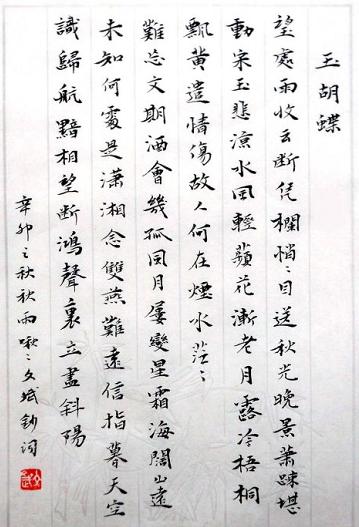 玉胡蝶
望處雨收云断凭欄悄々目送秋光晚景蕭踈堪
動宋玉悲涼水风輕蘋花漸老月露冷梧桐
飘黄遣情傷故人何在煙水茫々
難忘文期酒會幾孤风月屢變星霜海闊山遠
未知何處是潇湘念雙燕難遠信指暮天空
識歸航黯相望断鴻聲裏立盡斜陽
辛卯之秋秋雨啾々文斌鈔词